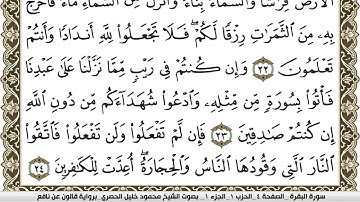 اَلَارْضَ فِرَٰشاٗ وَالسَّمَآءَ بِنَآءٗ وَأَنزَلَ مِنَ السَّمَآءِ مَآءٗ فَأَخْرَجَ
بِهِۦ مِنَ الثَّمَرَٰتِ رِزْقاٗ لَّكُمْۖ فَلَا تَجْعَلُواْ لِلهِ أَندَاداٗ وَأَنتُمْ
تَعْلَمُونَ ٢٢ وَإِن كُنتُمْ فِے رَيْبٖ مِّمَّا نَزَّلْنَا عَلَىٰ عَبْدِنَا
فَأْتُواْ بِسُورَةٖ مِّن مِّثْلِهِۦ وَادْعُواْ شُهَدَآءَكُم مِّن دُونِ اِللَّهِ
إِن كُنتُمْ صَٰدِقِينَ ٢٣ فَإِن لَّمْ تَفْعَلُواْ وَلَن تَفْعَلُواْ فَاتَّقُواْ
النَّارَ اَلتِے وَقُودُهَا اَلنَّاسُ وَالْحِجَارَةُۖ أُعِدَّتْ لِلْكَٰفِرِينَ ٢٤
سورة البقرة_الصفحة ٤_الحزب ١_الجزء ١_ بصوت الشيخ محمود خليل الحصري_برواية قالون عن نافع